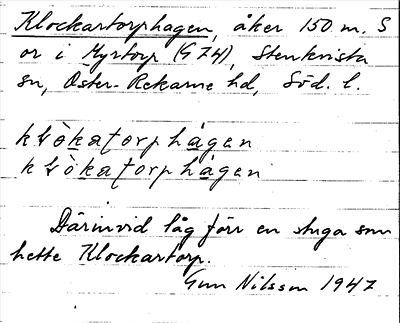 Klockartorphagen, åker 150 m. S
or i Myrtorp (G 74), Stenkvista
sn, Öster-Rekarne hd, Söd. l.
klòkatorphágen
klòkatorphágen
Därinvid låg förr en stuga som
hette Klockartorp.
Gun Nilsson 1947